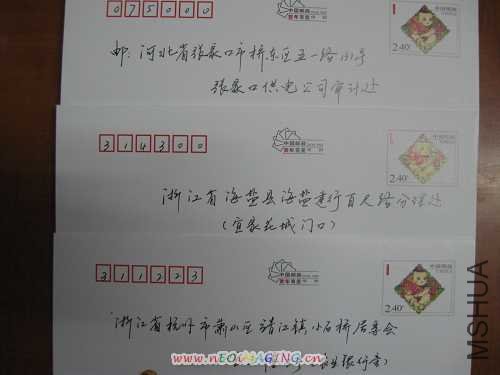 075000
1
中国邮政
2.40
邮：河北省张家口市桥东区五一路151号
张家口供电公司审计处
314300
中国邮政
贺年有奖
1
中国邮政
2.40
浙江省海盐县海盐建行百尺路分理处
(宜家花城门口)
311223
中国邮政
贺年有奖
1
中国邮政
2.40
浙江省杭州市萧山区靖江镇小石桥居委会
www.NEOIMAGING.cn
MSHUA